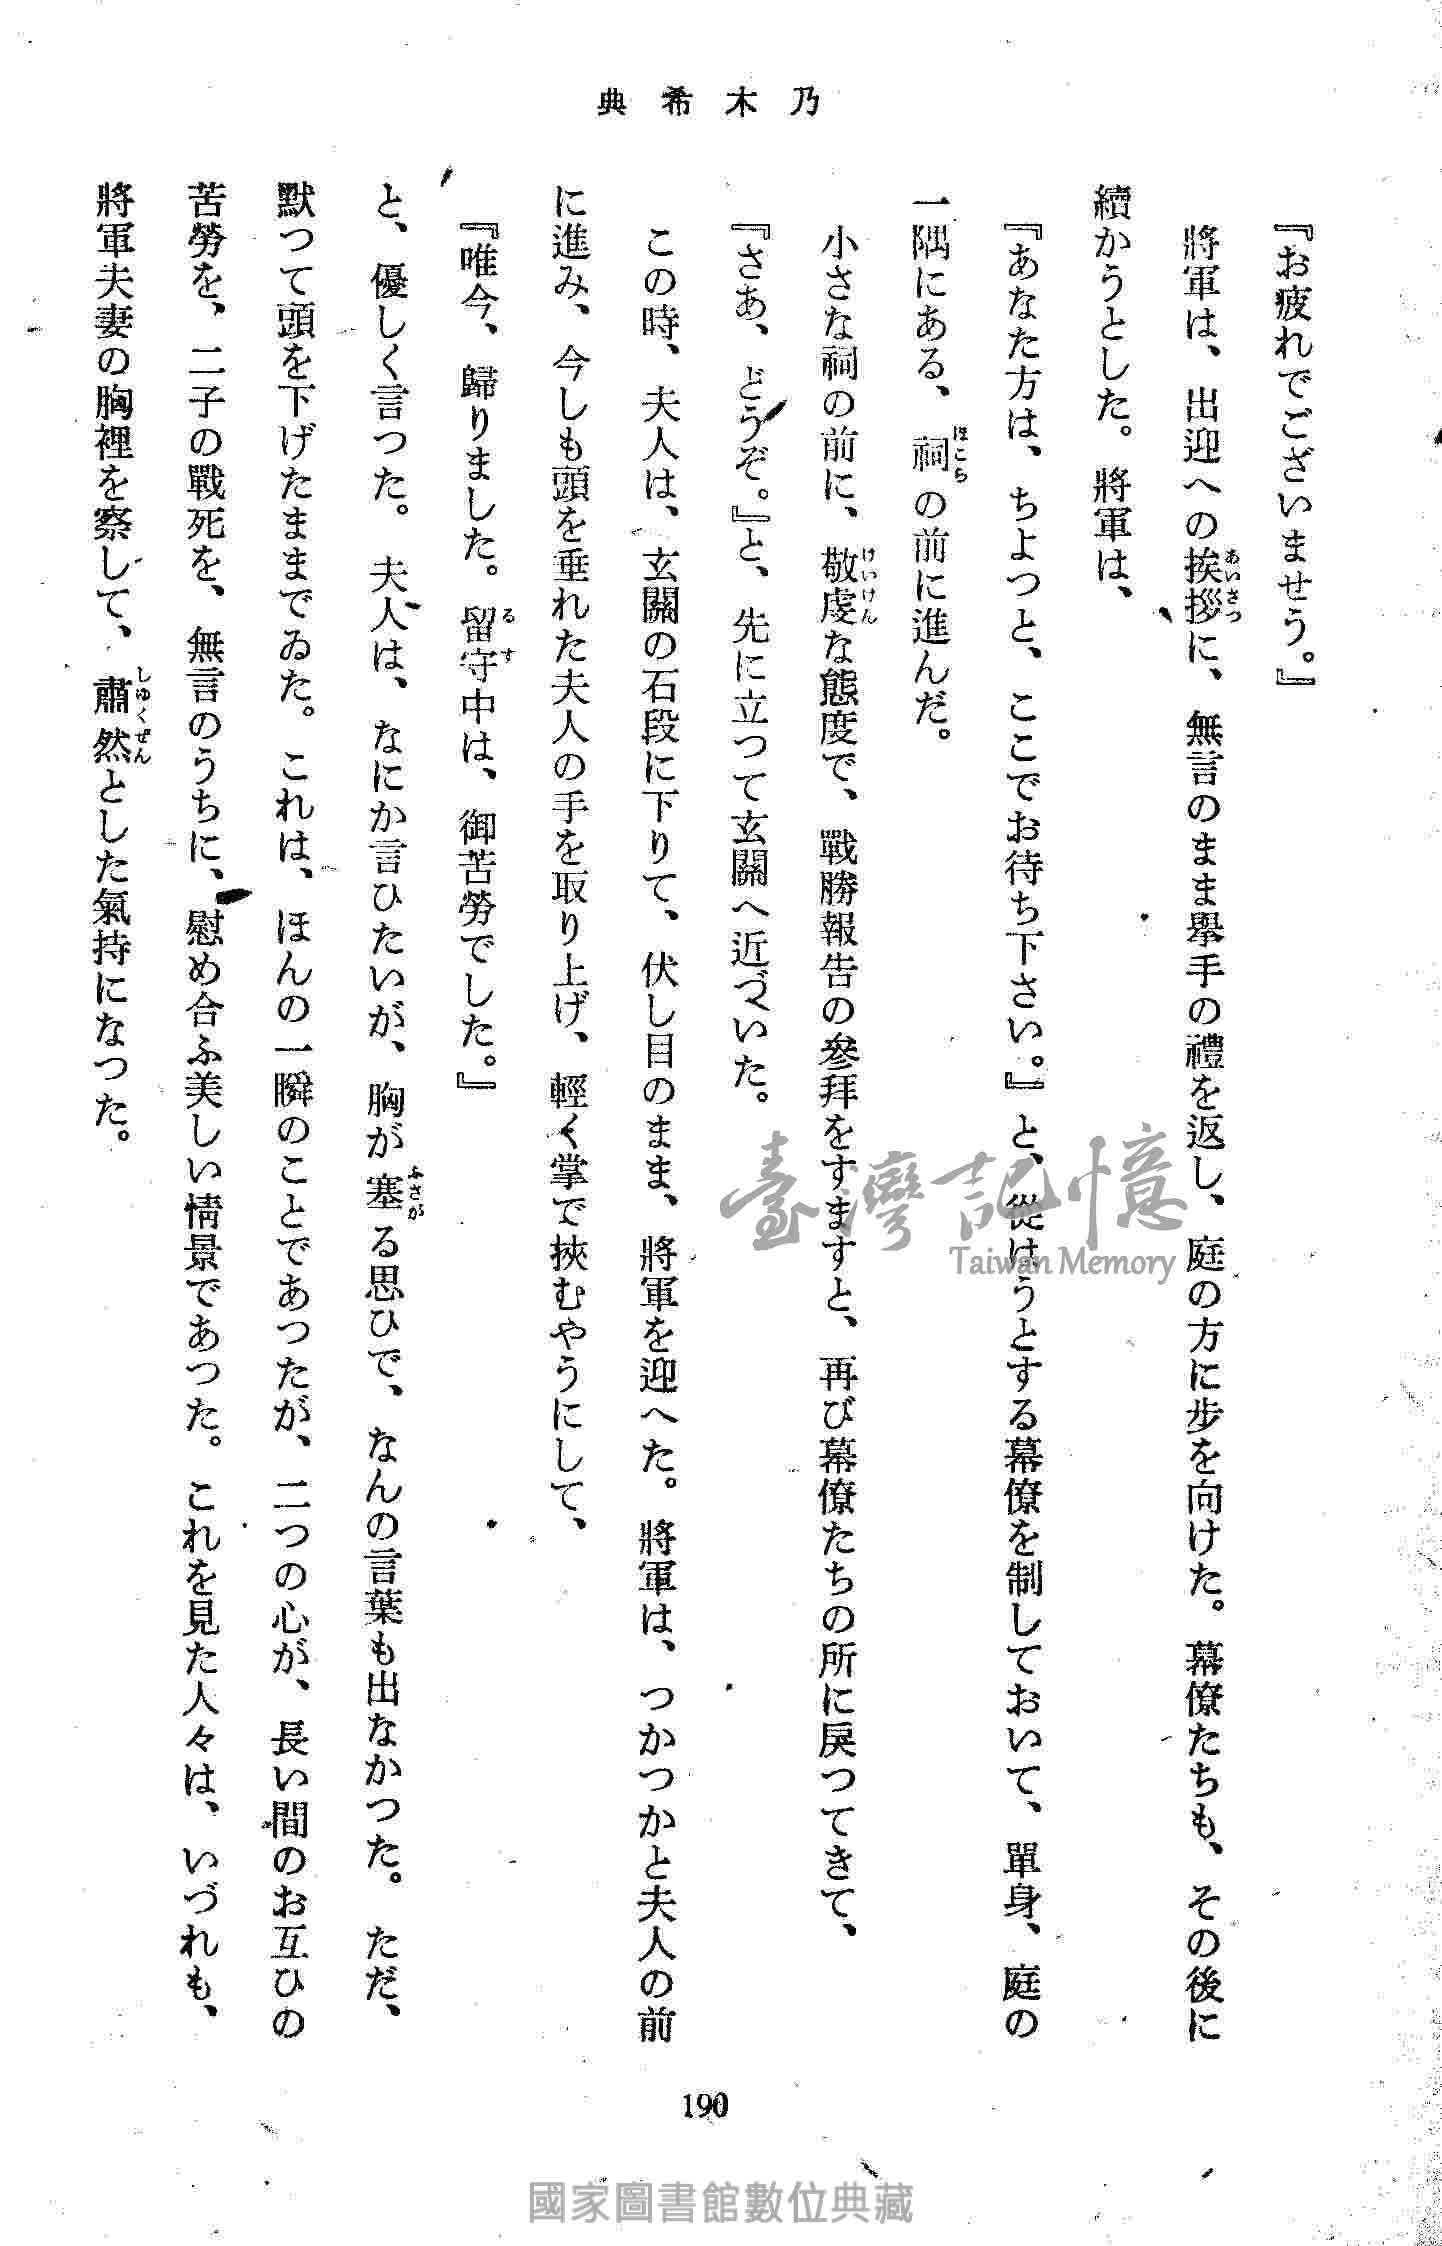 乃木希典
『お疲れでございませう。』
將軍は、出迎への挨拶に、無言のまま擧手の禮を返し、庭の方に步を向けた。幕僚たちも、その後に
あいさつ
續かうとした。將軍は、
『あなた方は、ちよつと、ここでお待ち下さい。』と、從はうとする幕僚を制しておいて、單身、庭の
一隅にある、祠の前に進んだ。
ほこら
小さな祠の前に、敬虔な態度で、戰勝報告の參拜をすますと、再び幕僚たちの所に戾つてきて、
けいけん
『さあ、どうぞ。』と、先に立つて玄關へ近づいた。
この時、夫人は、玄關の石段に下りて、伏し目のまま、將軍を迎へた。將軍は、つかつかと夫人の前
に進み、今しも頭を垂れた夫人の手を取り上げ、輕く掌で挾むやうにして、
『唯今、歸りました。留守中は、御苦勞でした。』
るす
と、優しく言つた。夫人は、なにか言ひたいが、胸が塞る思ひで、なんの言葉も出なかつた。ただ、
ふさが
默つて頭を下げたままでゐた。これは、ほんの一瞬のことであつたが、二つの心が、長い間のお互ひの
苦勞を、二子の戰死を、無言のうちに、慰め合ふ美しい情景であつた。これを見た人々は、いづれも、
將軍夫妻の胸裡を察して、肅然とした氣持になつた。
しゆくぜん
190
臺灣記憶
Taiwan Memory
國家圖書館數位典藏